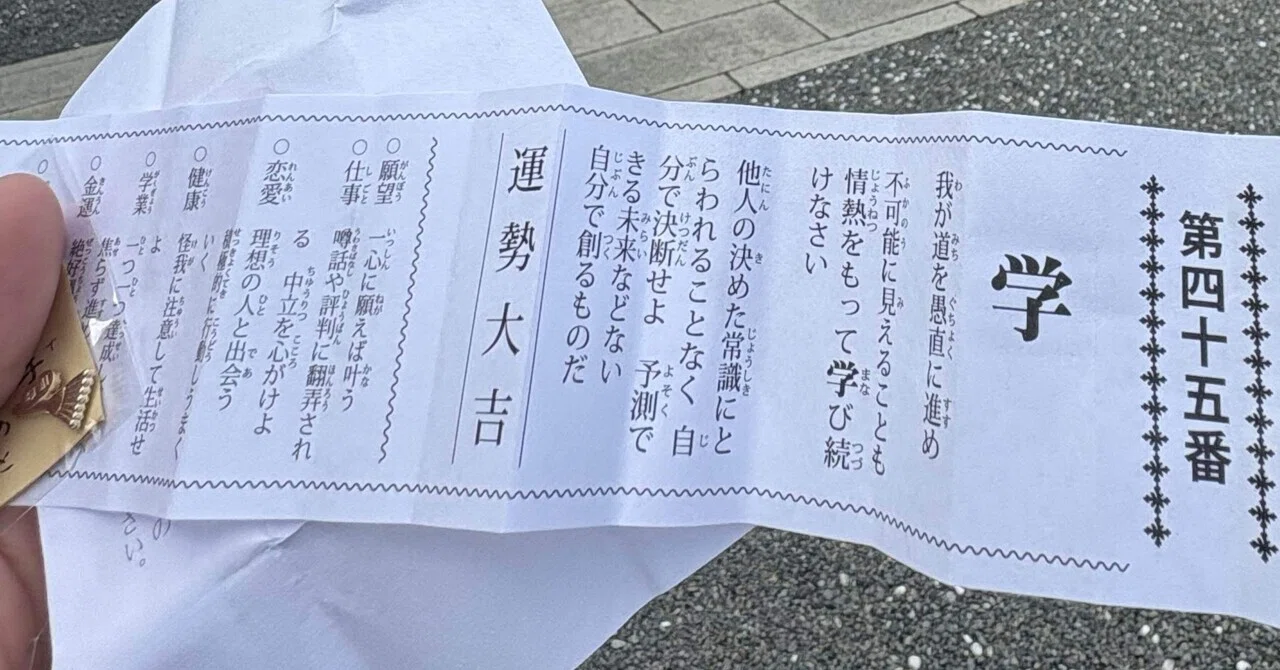 第四十五番
学
我が道を愚直に進め
不可能に見えることも
情熱をもって学び続
けなさい
他人の決めた常識にと
らわれることなく 自
分で決断せよ 予測で
きる未来などない
自分で創るものだ
運勢大吉
○願望 一心に願えば叶う
○仕事 噂話や評判に翻弄され
る 中立を心がけよ
○恋愛 理想の人と出会う
積極的に行動しうまく
いく
○健康 怪我に注意して生活せ
よ
○学業 一つ一つ達成し
○金運 焦らず進め
絶好
さい。
の